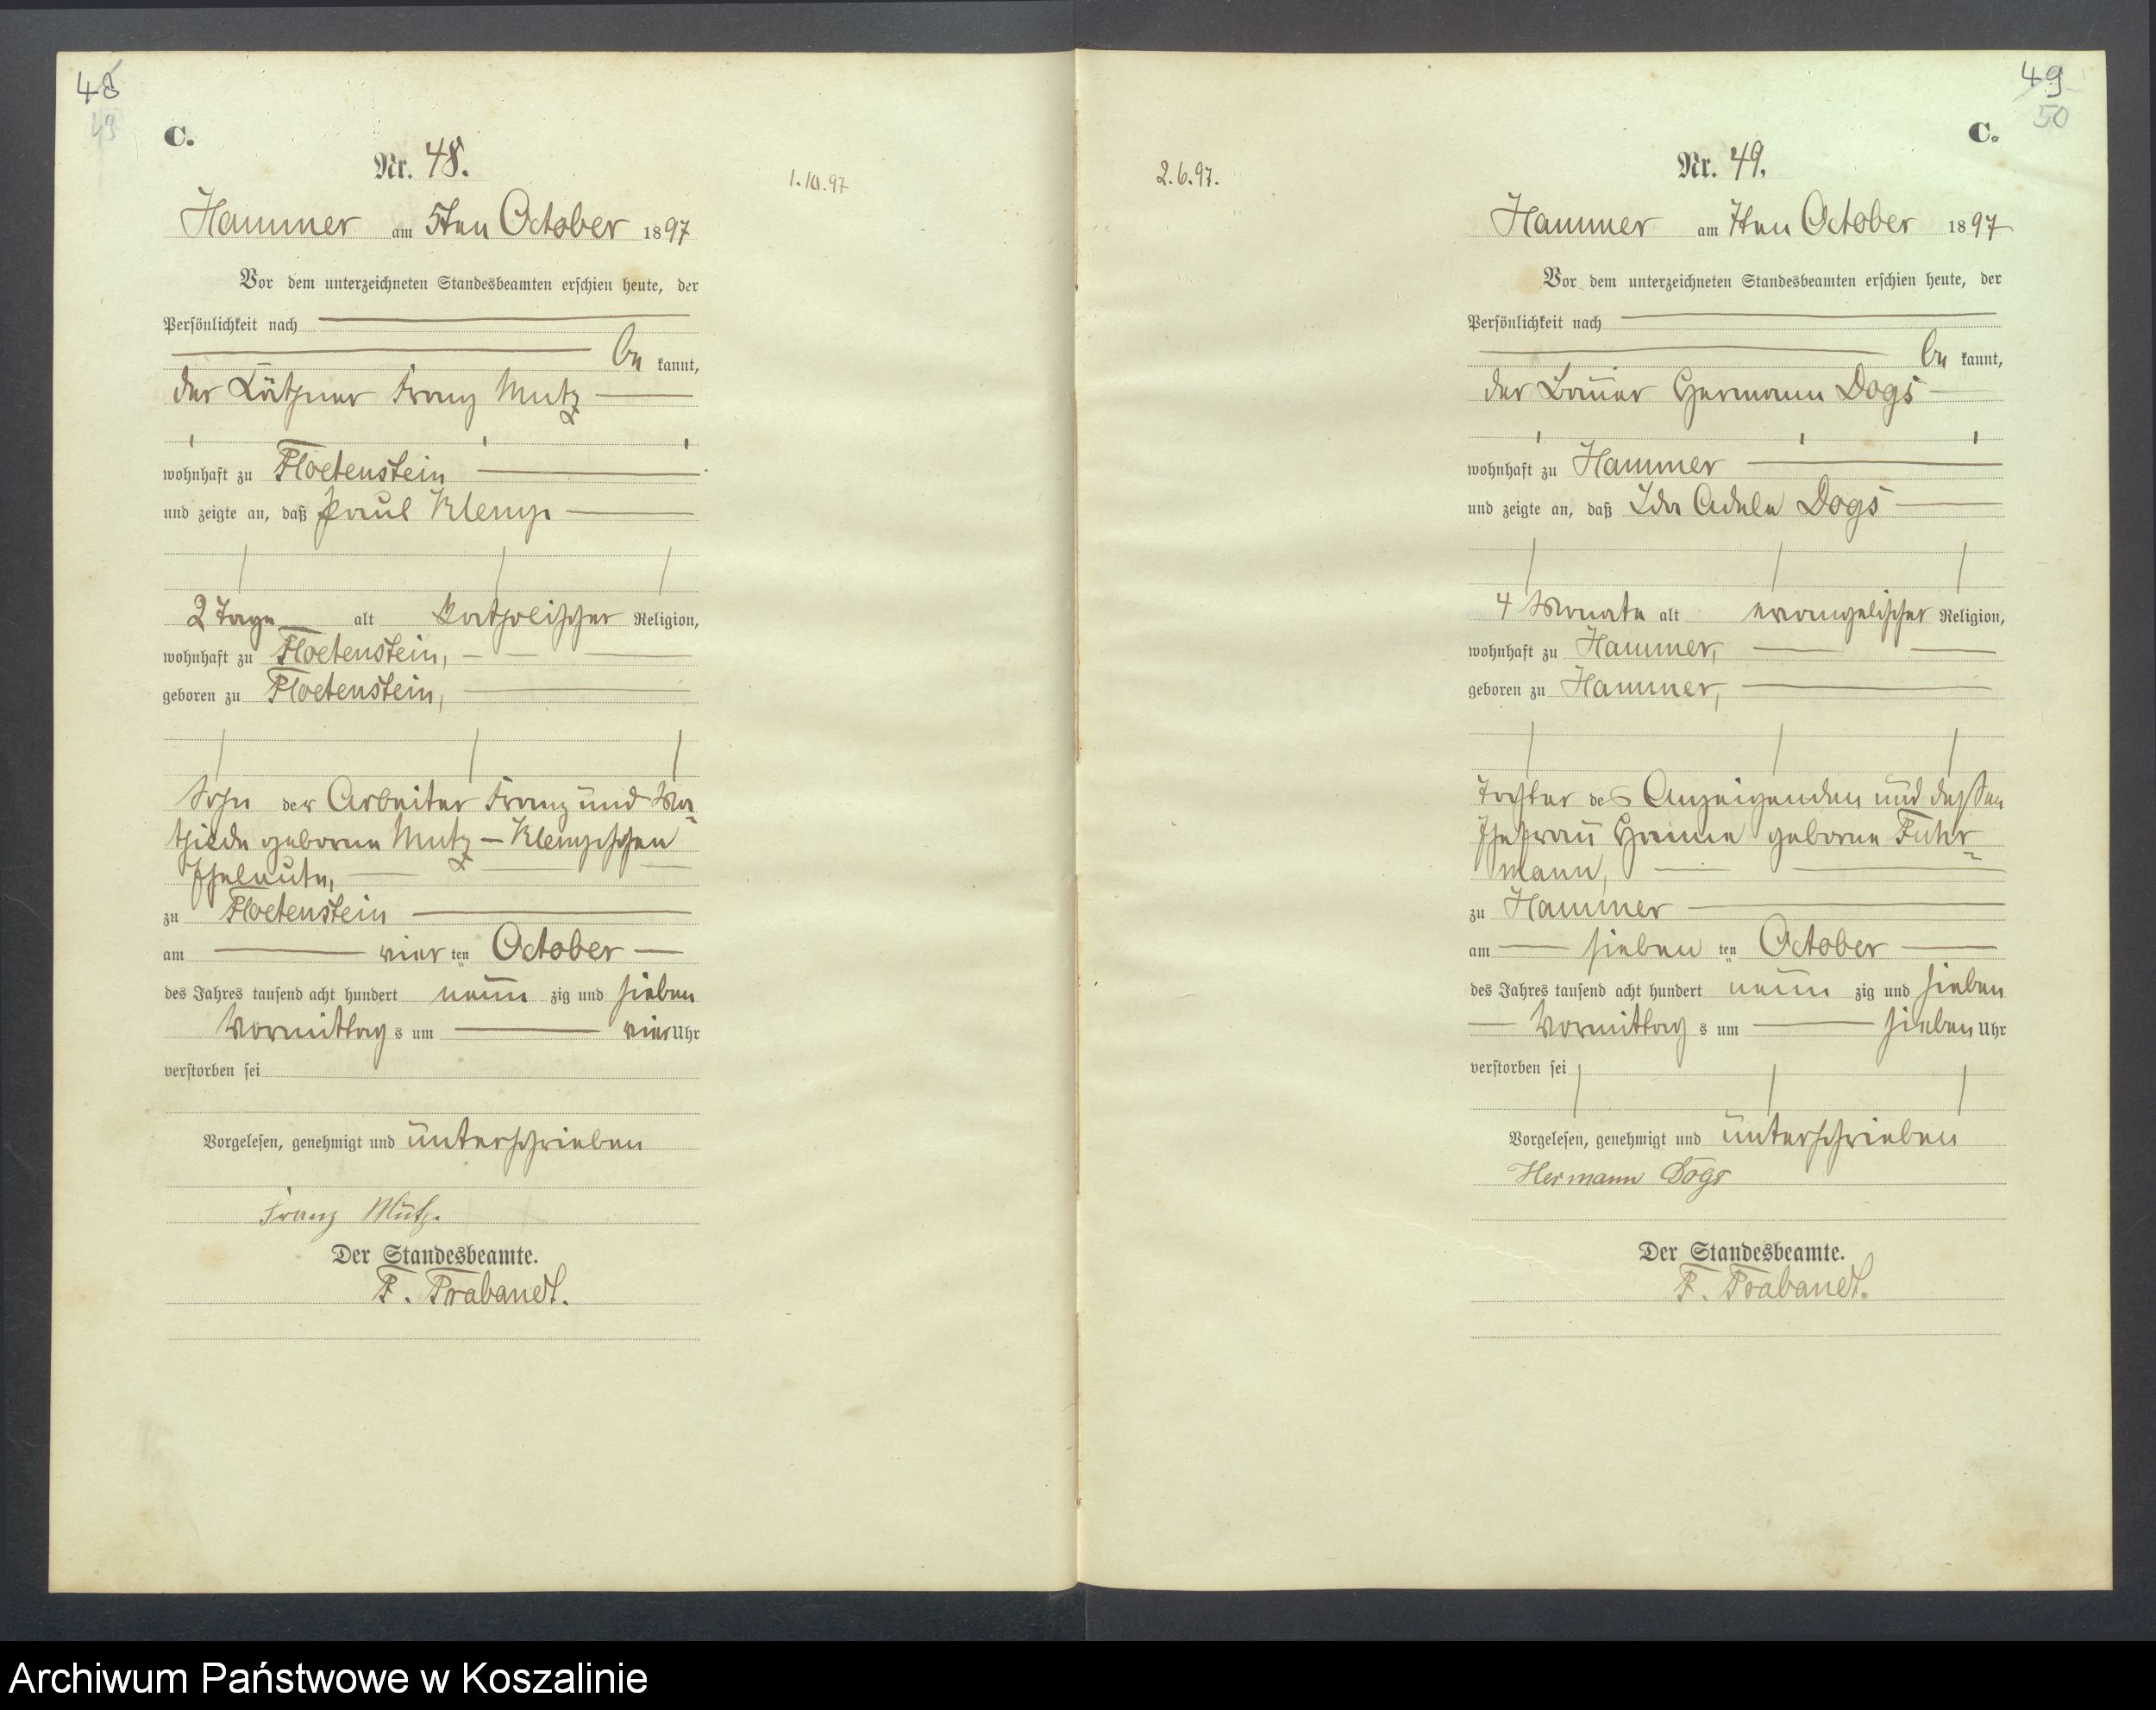 48
49
C.
Nr. 48.
1.10.97
Hammer am 5ten October 1897
Vor dem unterzeichneten Standesbeamten erschien heute, der
Persönlichkeit nach
be kannt,
der Käthner Franz Mutz
wohnhaft zu Floetenstein
und zeigte an, daß Paul Klemp
2 Tage alt katholischer Religion,
wohnhaft zu Floetenstein,
geboren zu Floetenstein,
Sohn der Arbeiter Franz und Ma-
thilde geborne Mutz - Klempschen
Eheleute,
zu Floetenstein
am vier ten October
des Jahres tausend acht hundert neun zig und sieben
Vormittag s um vier Uhr
verstorben sei
Vorgelesen, genehmigt und unterschrieben
Franz Mutz.
Der Standesbeamte.
F. Prabandt.
49
50
C.
Nr. 49.
2.6.97.
Hammer am 7ten October 1897
Vor dem unterzeichneten Standesbeamten erschien heute, der
Persönlichkeit nach
be kannt,
der Bauer Hermann Dogs
wohnhaft zu Hammer
und zeigte an, daß Ida Adele Dogs
4 Monate alt evangelischer Religion,
wohnhaft zu Hammer,
geboren zu Hammer,
Tochter des Anzeigenden und dessen
Ehefrau Hanne geborne Fuhr-
mann,
zu Hammer
am sieben ten October
des Jahres tausend acht hundert neun zig und sieben
Vormittag s um sieben Uhr
verstorben sei
Vorgelesen, genehmigt und unterschrieben
Hermann Dogs
Der Standesbeamte.
F. Prabandt.
Archiwum Państwowe w Koszalinie